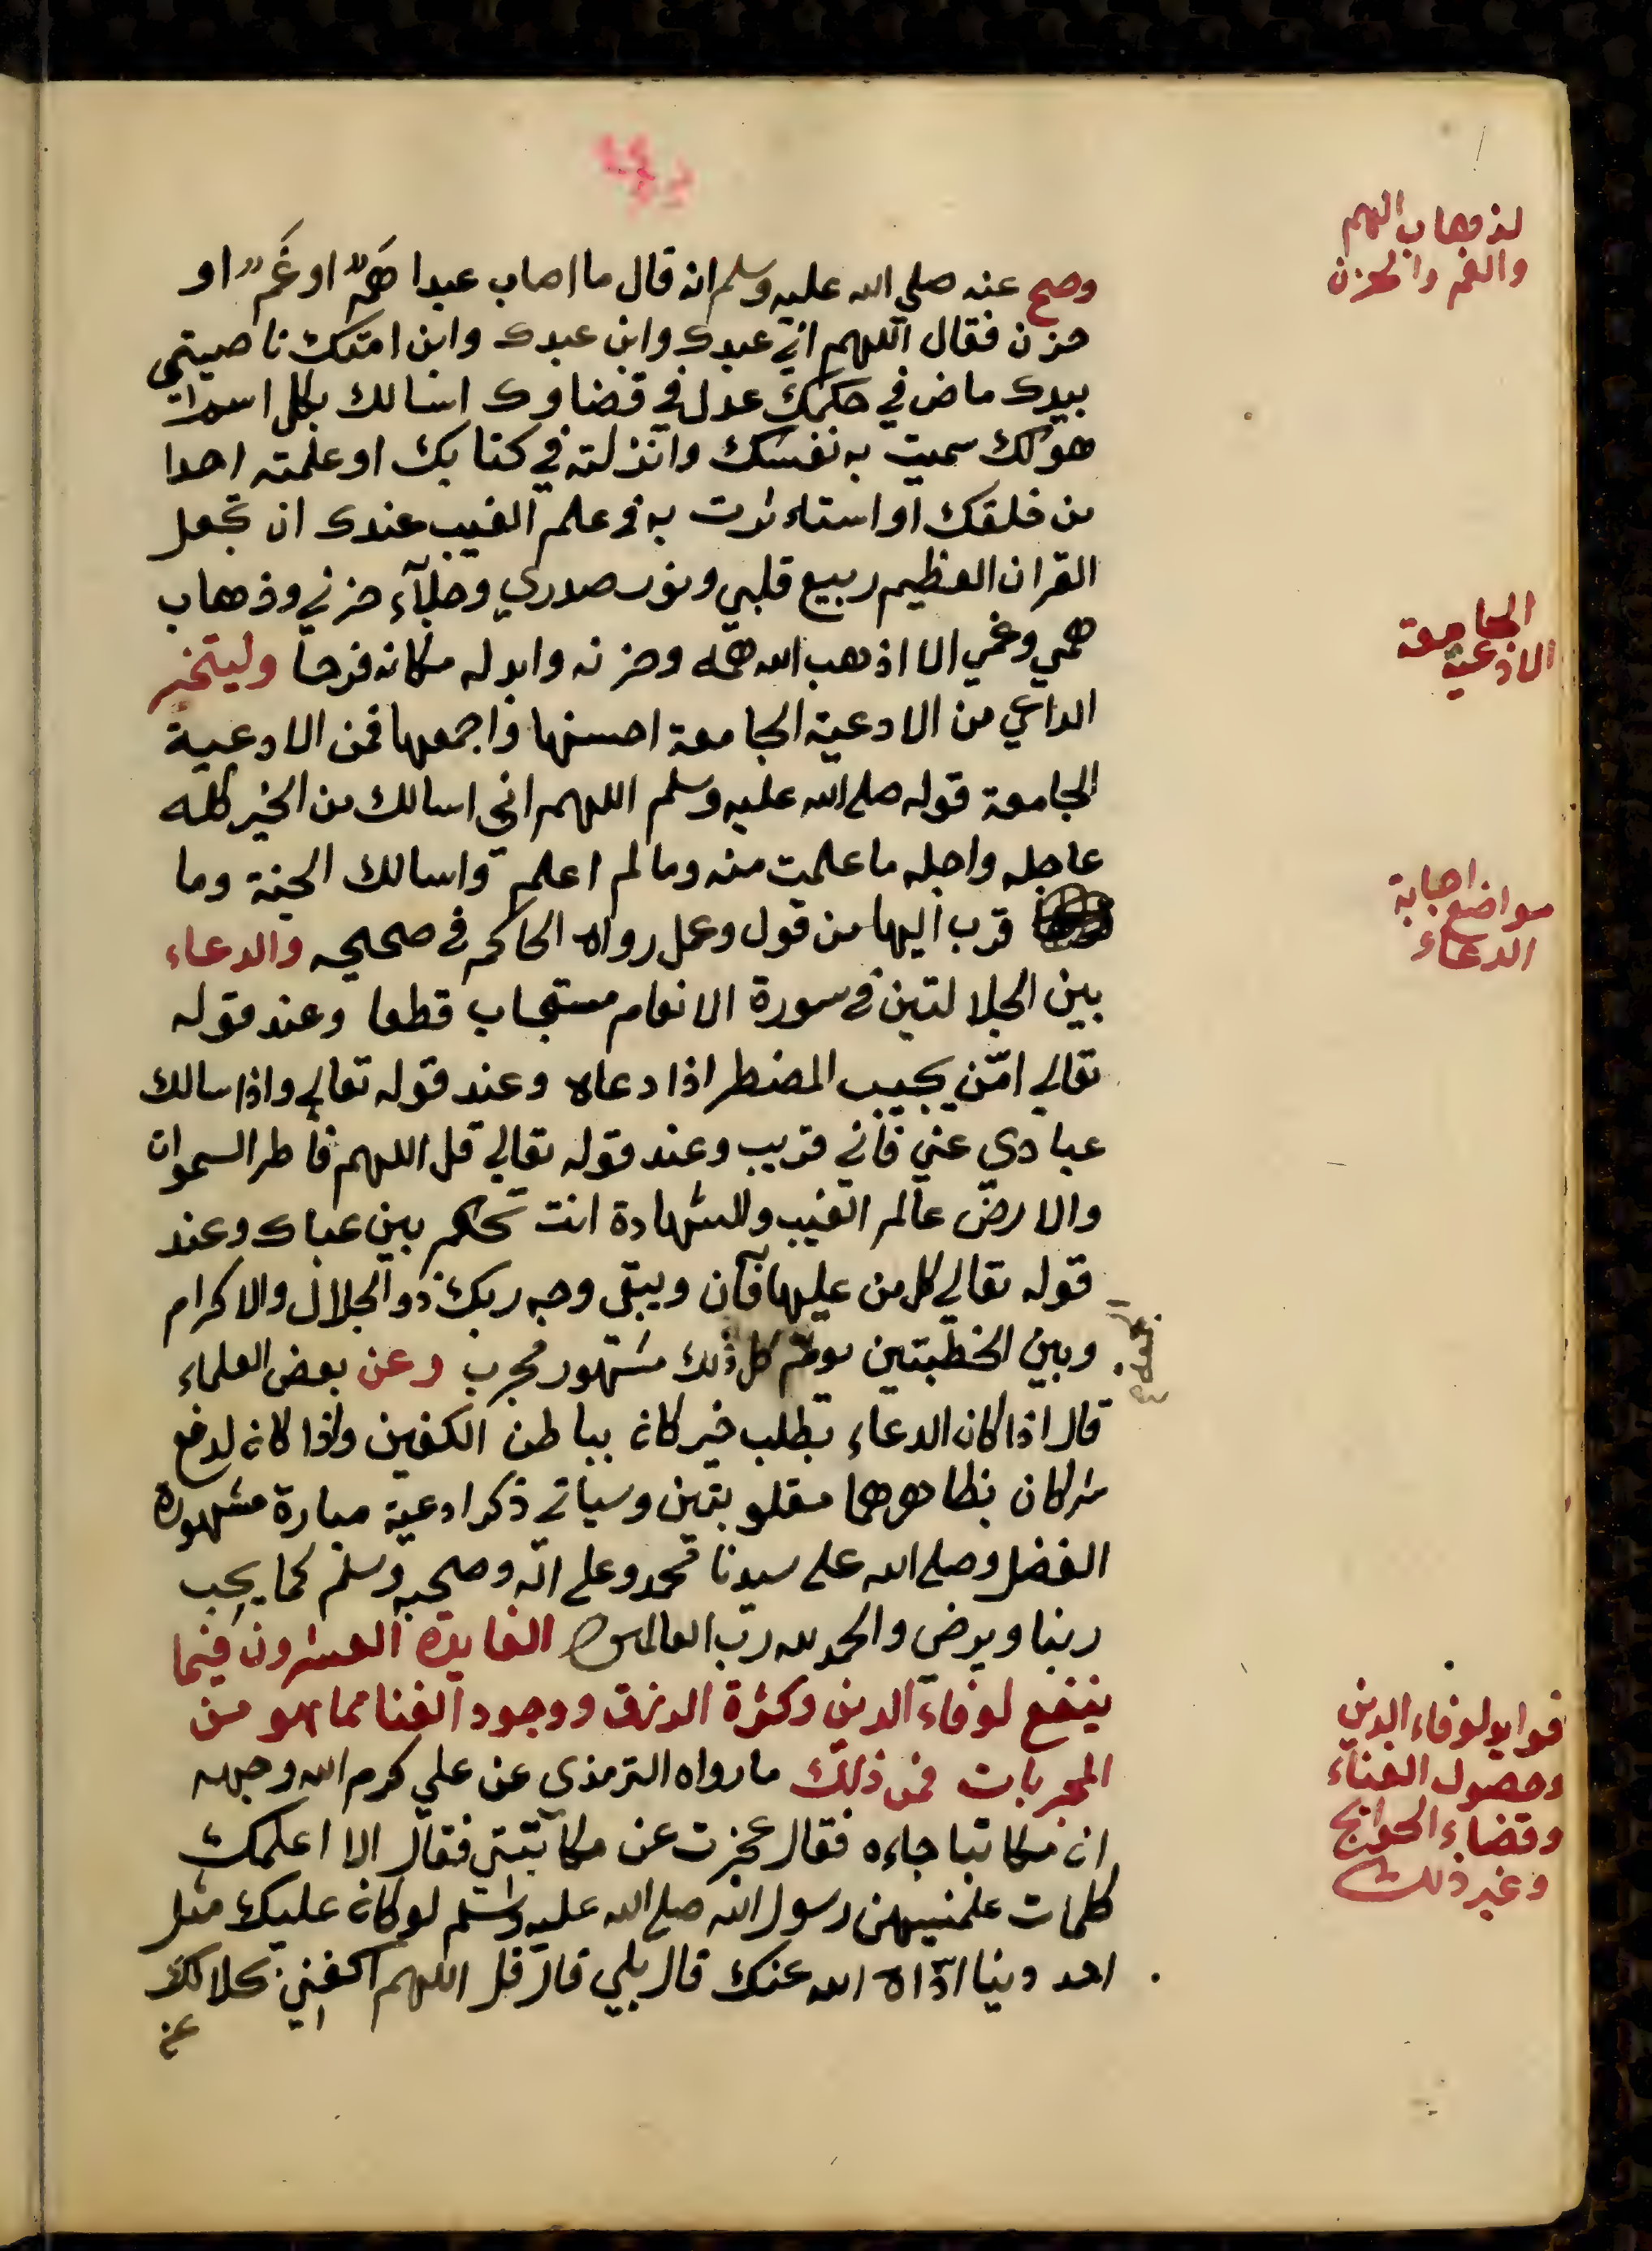 وصح عنه صلي الله عليه وسلم انه قال ما اصاب عبدا هَمٌّ او غَمٌّ او
حزن فقال اللهم اني عبدك وابن عبدك وابن امتك ناصيتي
بيدك ماض في حكمك عدل في قضاوك اسالك بكل اسم
هو لك سميت به نفسك وانزلته في كتابك او علمته احدا
من خلقك او استاءثرت به في علم الغيب عندك ان تجعل
القران العظيم ربيع قلبي ونور صدري وجلآء حزني وذهاب
همي وغمي الا اذهب الله همه وحزنه وابدله مكانه فرحا وليتخير
الداعي من الادعية الجامعة احسنها واجمعها فمن الادعية
الجامعة قوله صلى الله عليه وسلم اللهم اني اسالك من الخير كله
عاجله واجله ما علمت منه وما لم اعلم واسالك الجنة وما
قرب اليها من قول وعمل رواه الحاكم في صحيحه والدعاء
بين الجلالتين في سورة الانعام مستجاب قطعا وعند قوله
تعالي امّن يجيب المضطر اذا دعاه وعند قوله تعالي واذا سالك
عبادي عني فاني قريب وعند قوله تعالي قل اللهم فاطر السموات
والارض عالم الغيب والشهادة انت تحكم بين عبادك وعند
قوله تعالي كل من عليها فآن ويبقى وجه ربك ذو الجلال والاكرام
وبين الخطبتين يوم كل ذلك مشهور مجرب وعن بعض العلماء
الجمعة
قال اذا كان الدعاء بطلب خير كان بباطن الكفين واذا كان لدفع
شر كان بظاهرهما مقلوبتين وسياتي ذكر ادعية مباركة مشهورة
الفضل وصلى الله على سيدنا محمد وعلى اله وصحبه وسلم كما يحب
ربنا ويرضى والحمد لله رب العالمين الفايدة العشرون فيما
ينفع لوفاء الدين وكثرة الرزق ووجود الغنا مما هو من
المجربات فمن ذلك ما رواه الترمذي عن علي كرم الله وجهه
ان مكاتبا جاءه فقال عجزت عن مكاتبتي فقال الا اعلمك
كلمات علمنيهن رسول الله صلى الله عليه وسلم لو كان عليك مثل
احد دينا ادّاه الله عنك قال بلي قال قل اللهم اكفني بحلالك
عن
لذهاب الهم
والغم والحزن
الجامعة
الادعية
مواضع اجابة
الدعاء
فوايد لوفاء الدين
وحصول الغناء
وقضاء الحوايج
وغير ذلك